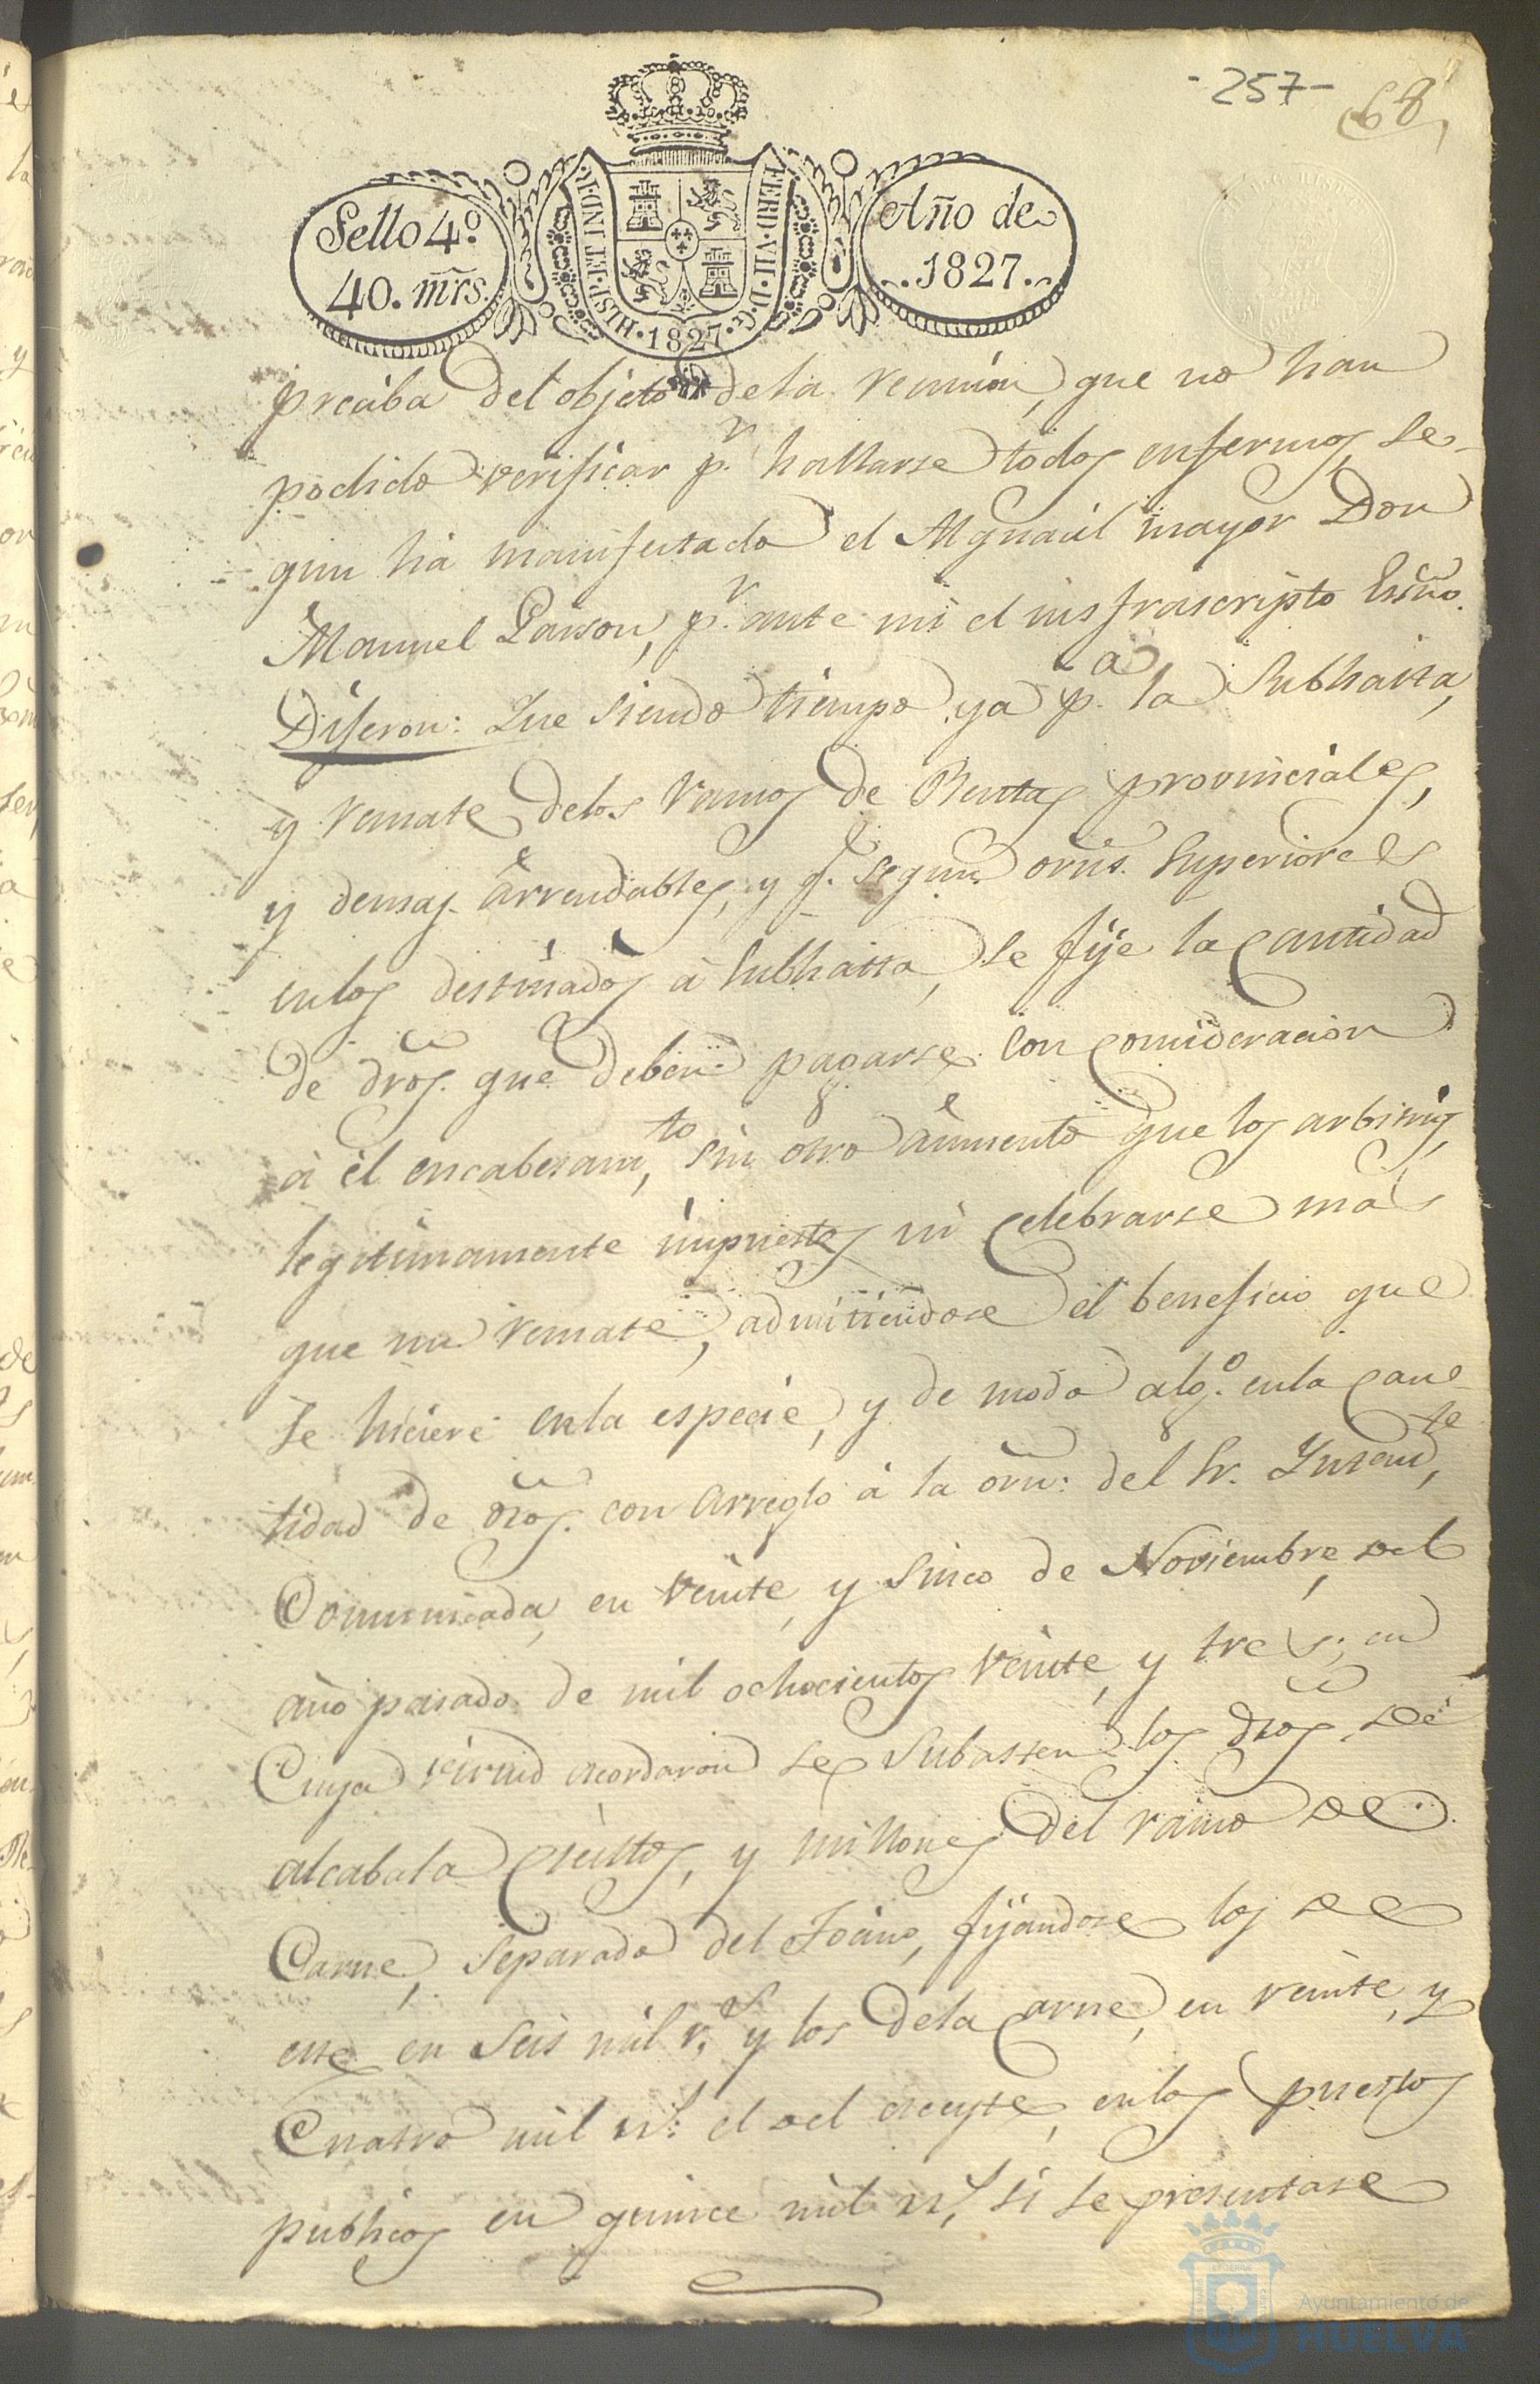 - 257 -
68
Sello 4º
40. mrs.
HISP. ET IND. R.
FERD. VII. D. G.
1827.
Año de
1827.
preciba del objeto dela reunion, que no han
podido verificar pr. hallarse todos enfermos, se-
gun ha manifestado el Alguacil mayor Don
Manuel Garson, pr. ante mi el insfrascripto Essno.
Dijeron: Que siendo tiempo ya pa. la Subhasta,
y remate delos ramos de Rentas provinciales,
y demas arrendables, y q. segun orns. Superiores
enlos destinados à Subhasta, se fije la cantidad
de dros. que deben pagarse con consideracion
à el encabesamto, sin otro aumento que los arbitrios
legitimamente impuestos ni celebrarse mas
que un remate, admitiendose el beneficio que
se hiciere enla especie, y de modo algo. enla can-
tidad de dros. con arreglo à la orn: del Sr. Intendte,
Comunicada, en veinte, y sinco de Noviembre, del
año pasado de mil ochocientos veinte, y tres; en
Cuya virtud acordaron se Subasten los dros de
alcabala cientos, y millones del ramo de
Carne, separado del Tosino, fijandose los de
este en seis mil rs. y los dela Carne, en veinte, y
Cuatro mil rs: el del aceyte, enlos puestos
publicos en quince mil rs, si se presentase
Ayuntamiento de
HUELVA